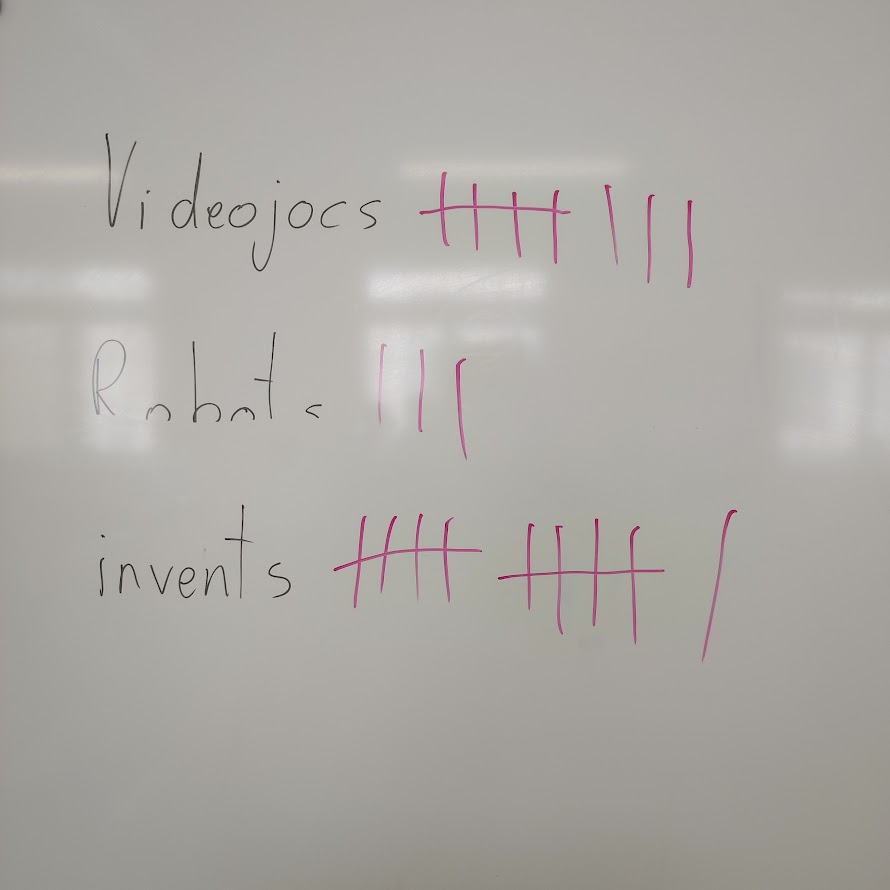 Videojocs 卌 |||
Robots |||
invents 卌 卌 |